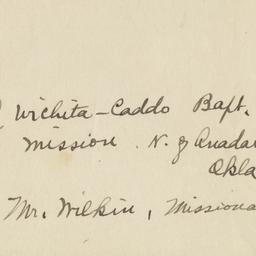 Wichita-Caddo Bapt.
Mission. N. of Anadar
Okla
Mr. Wilkin, Missiona